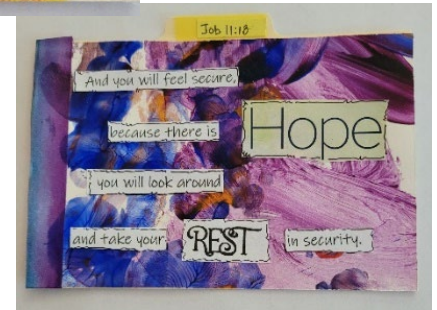 Job 11:18
And you will feel secure,
because there is Hope
you will look around
and take your REST in security.